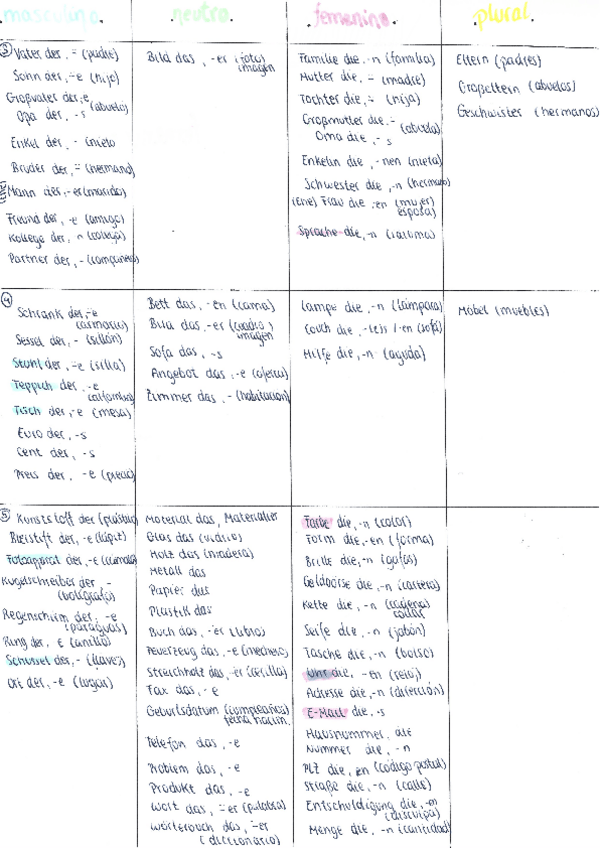 masculino. neutro. femenino. plural.
③ Vater der, ⸚ (padre)
Sohn der, ⸚e (hijo)
Großvater der, (abuelo)
Opa der, -s
Enkel der, - (nieto)
Bruder der, ⸚ (hermano)
Mann der, ⸚er (marido)
Freund der, -e (amigo)
Kollege der, -n (colega)
Partner der, - (compañero)
Bild das, -er (foto)
imagen
Familie die, -n (familia)
Mutter die, ⸚ (madre)
Tochter die, ⸚ (hija)
Großmutter die, ⸚ (abuela)
Oma die, -s
Enkelin die, -nen (nieta)
Schwester die, -n (hermana)
(Ehe) Frau die, -en (mujer)
esposa
Sprache die, -n (idioma)
Eltern (padres)
Großeltern (abuelos)
Geschwister (hermanos)
④ Schrank der, ⸚e
(armario)
Sessel der, - (sillón)
Stuhl der, ⸚e (silla)
Teppich der, -e
(alfombra)
Tisch der, -e (mesa)
Euro der, -s
Cent der, -s
Preis der, -e (precio)
Bett das, -en (cama)
Bild das, -er (cuadro)
imagen
Sofa das, -s
Angebot das, -e (oferta)
Zimmer das, - (habitación)
Lampe die, -n (lámpara)
Couch die, -(e)s / -en (sofá)
Hilfe die, -n (ayuda)
Möbel (muebles)
⑤ Kunststoff der (plástico)
Bleistift der, -e (lápiz)
Fotoapparat der, -e (cámara)
Kugelschreiber der, -
(bolígrafo)
Regenschirm der, -e
(paraguas)
Ring der, -e (anillo)
Schlüssel der, - (llave)
Ort der, -e (lugar)
Material das, Materialien
Glas das (vidrio)
Holz das (madera)
Metall das
Papier das
Plastik das
Buch das, ⸚er (libro)
Feuerzeug das, -e (mechero)
Streichholz das, ⸚er (cerilla)
Fax das, -e
Geburtsdatum (cumpleaños)
fecha nacim.
Telefon das, -e
Problem das, -e
Produkt das, -e
Wort das, ⸚er (palabra)
Wörterbuch das, ⸚er
(diccionario)
Farbe die, -n (color)
Form die, -en (forma)
Brille die, -n (gafas)
Geldbörse die, -n (cartera)
Kette die, -n (cadena)
collar
Seife die, -n (jabón)
Tasche die, -n (bolso)
Uhr die, -en (reloj)
Adresse die, -n (dirección)
E-Mail die, -s
Hausnummer, die
Nummer die, -n
PLZ die, (código postal)
Straße die, -n (calle)
Entschuldigung die, -en
(disculpa)
Menge die, -n (cantidad)